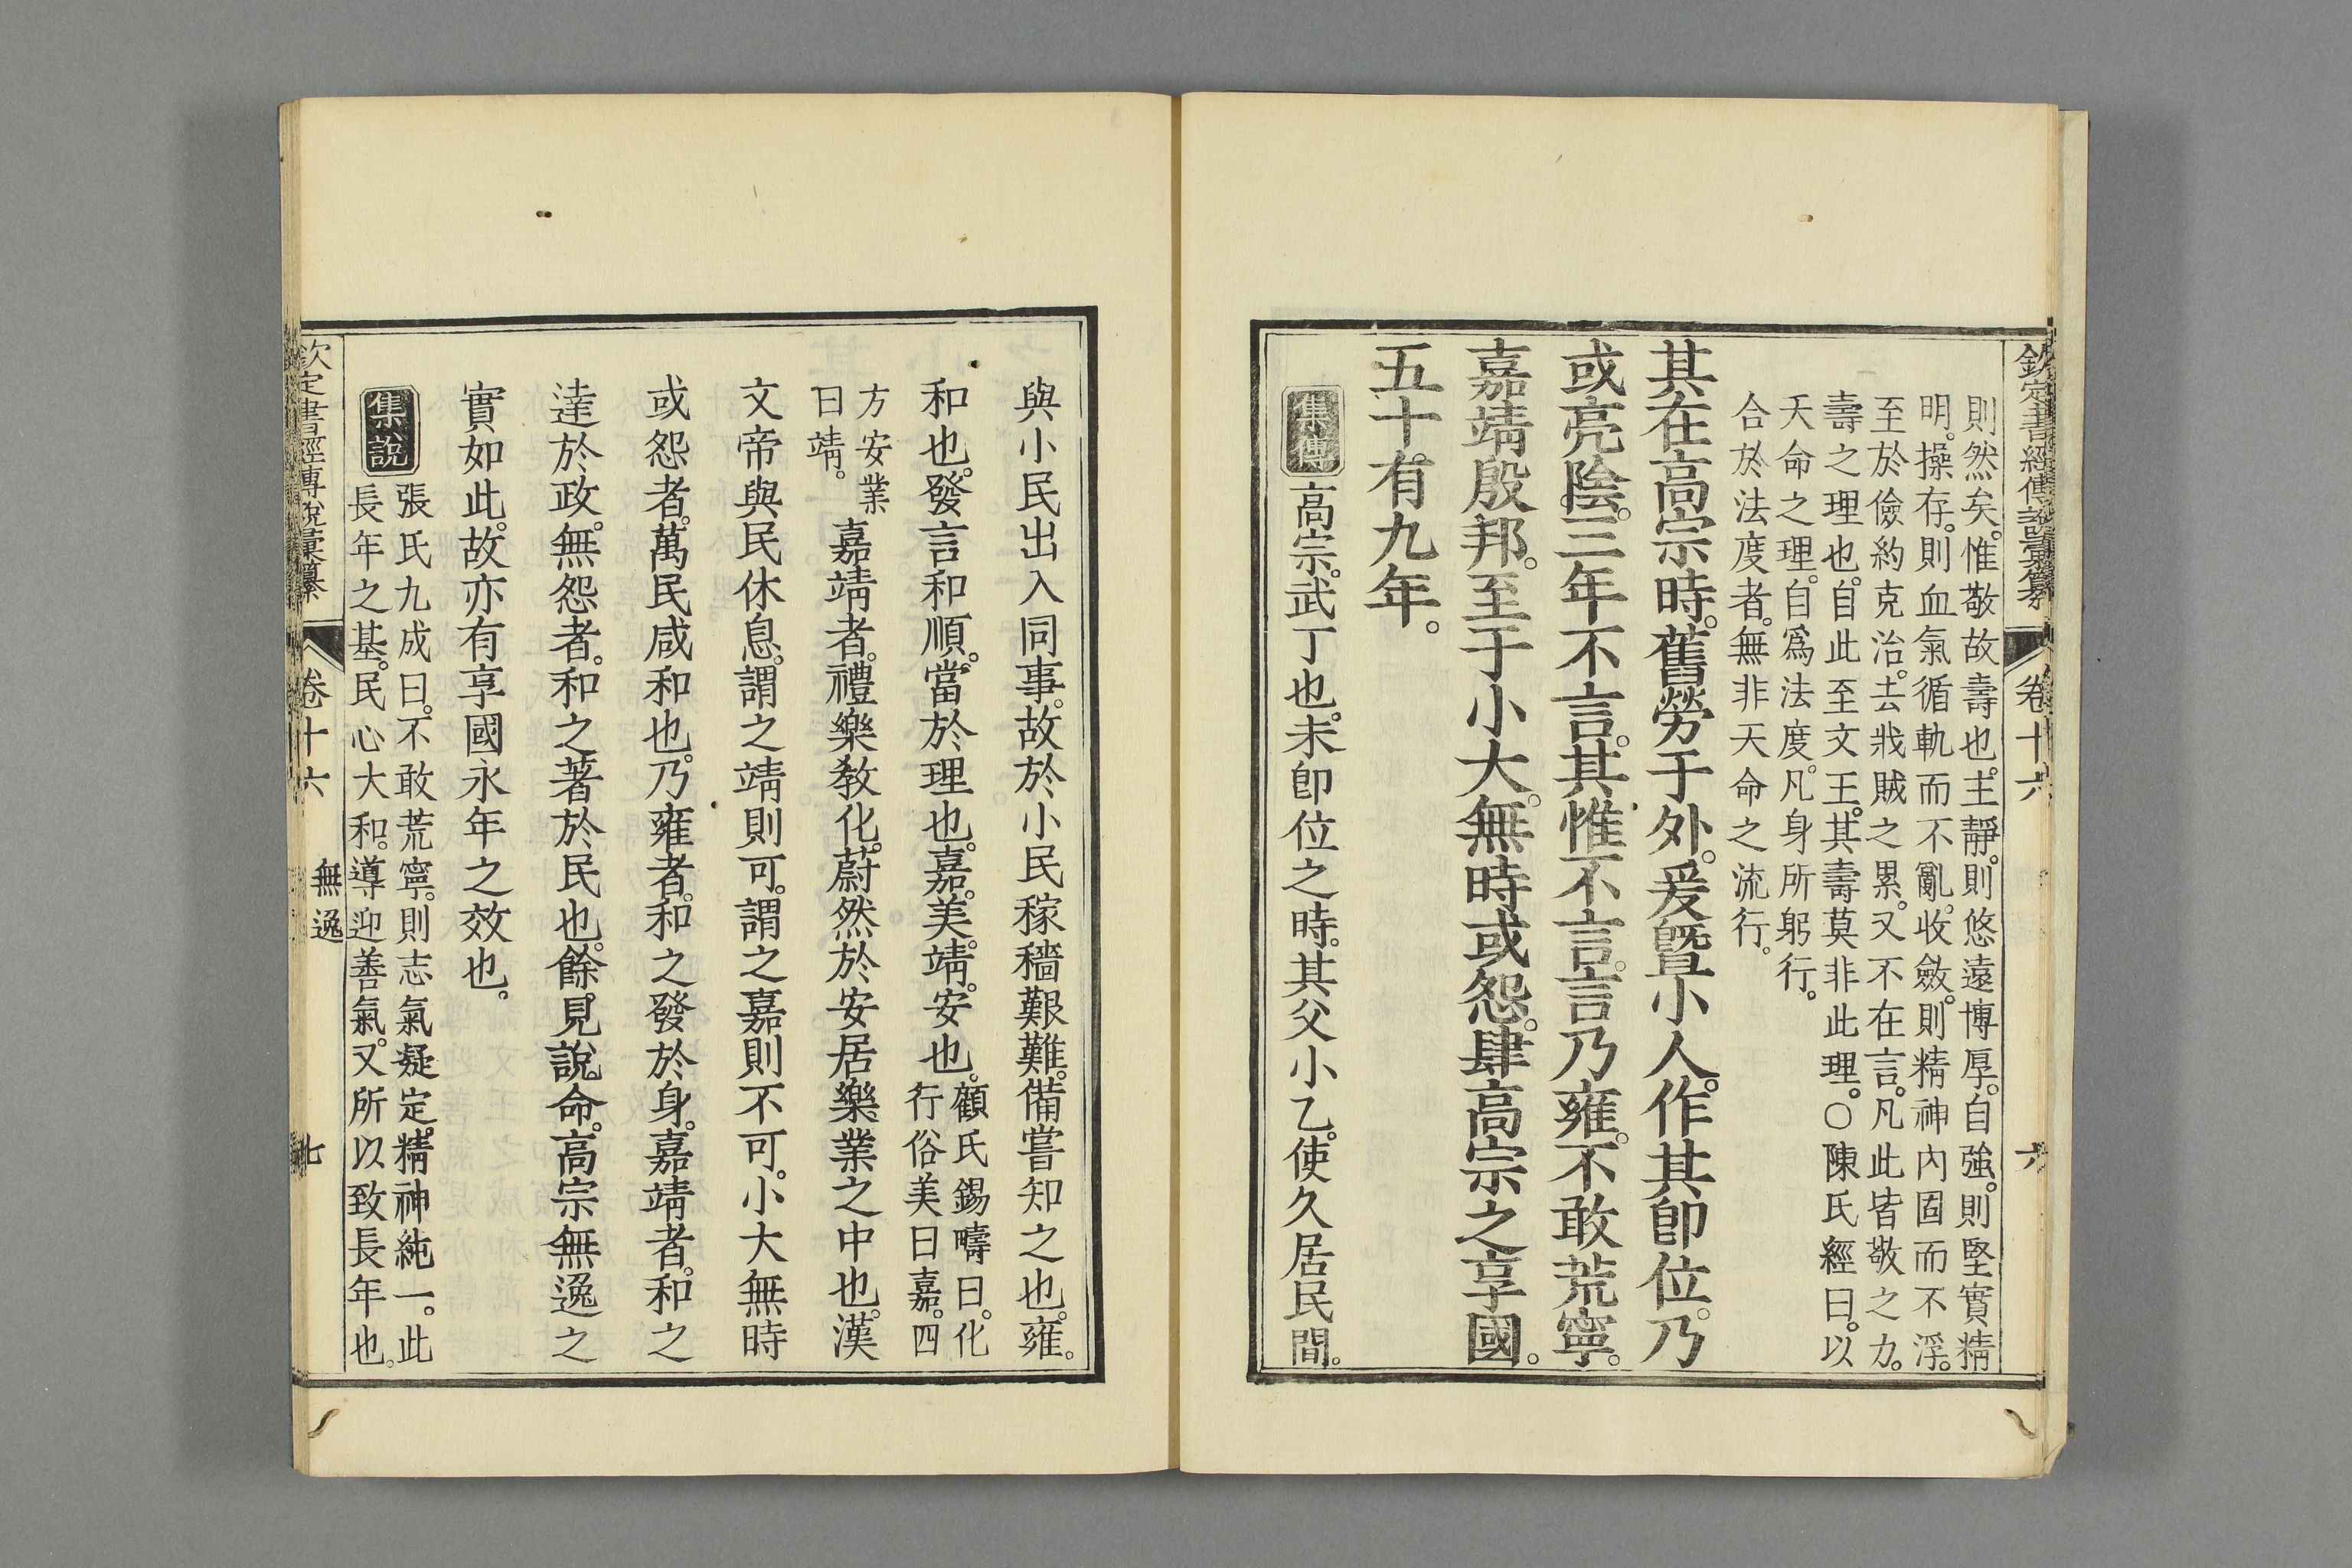 欽定書經傳說彙纂 卷十六 六
則然矣。惟敬故壽也。主靜。則悠遠博厚。自強。則堅實精
明。操存。則血氣循軌而不亂。收斂。則精神內固而不浮。
至於儉約克治。去戕賊之累。又不在言。凡此皆敬之力。
壽之理也。自此至文王。其壽莫非此理。○陳氏經曰。以
天命之理。自爲法度。凡身所躬行。
合於法度者。無非天命之流行。
其在高宗時。舊勞于外。爰曁小人。作其卽位。乃
或亮陰。三年不言。其惟不言。言乃雍。不敢荒寧。
嘉靖殷邦。至于小大。無時或怨。肆高宗之享國。
五十有九年。
集傳 高宗。武丁也。未卽位之時。其父小乙。使久居民間。
與小民出入同事。故於小民稼穡艱難。備嘗知之也。雍。
和也。發言和順。當於理也。嘉。美。靖。安也。顧氏錫疇曰。化
行俗美曰嘉。四
方安業
曰靖。
嘉靖者。禮樂敎化。蔚然於安居樂業之中也。漢
文帝與民休息。謂之靖則可。謂之嘉則不可。小大無時
或怨者。萬民咸和也。乃雍者。和之發於身。嘉靖者。和之
達於政。無怨者。和之著於民也。餘見說命。高宗無逸之
實如此。故亦有享國永年之效也。
集說 張氏九成曰。不敢荒寧。則志氣凝定。精神純一。此
長年之基。民心大和。導迎善氣。又所以致長年也。
欽定書經傳說彙纂 卷十六 無逸 七